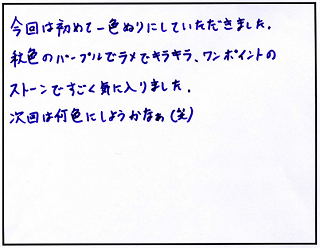 今回は初めて一色ぬりにしていただきました。
秋色のパープルでラメでキラキラ、ワンポイントの
ストーンですごく気に入りました。
次回は何色にしようかなぁ(笑)